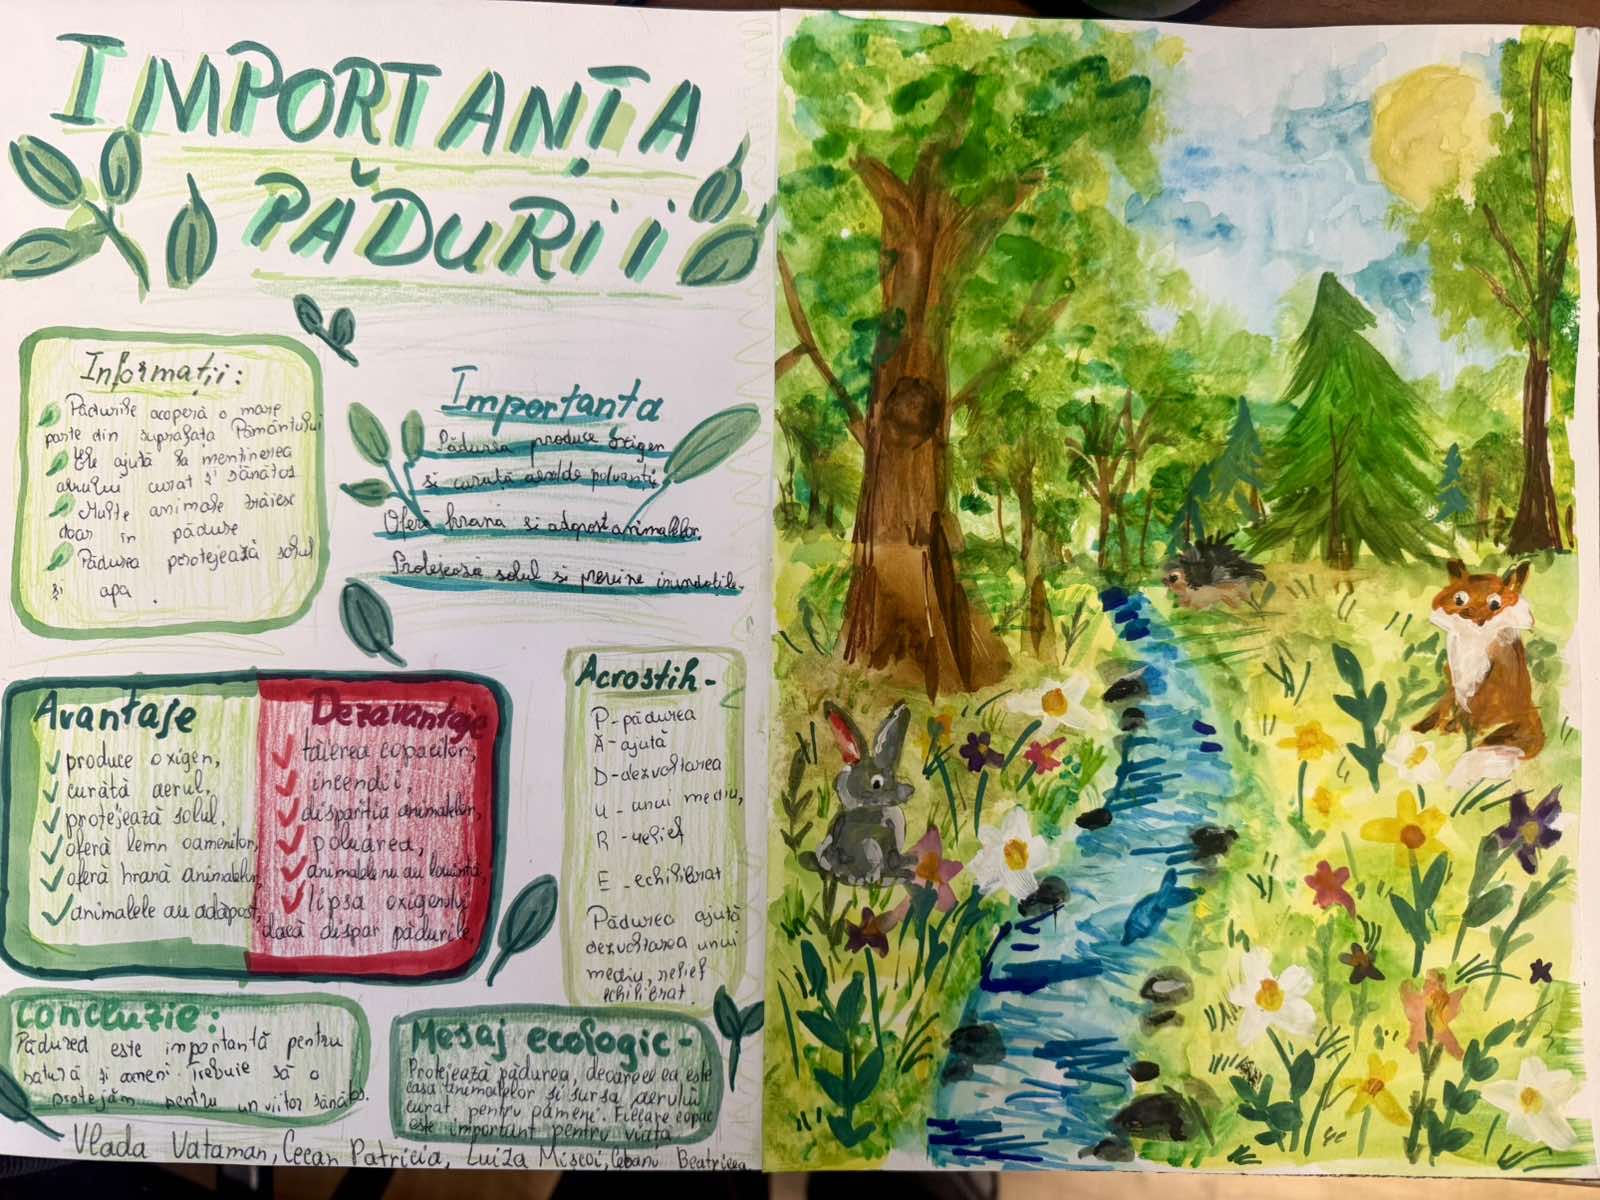 IMPORTANȚA
PĂDURII
Informații:
Pădurile acoperă o mare
parte din suprafața Pământului
Ele ajută la menținerea
aerului curat și sănătos
Multe animale trăiesc
doar în pădure
Pădurea protejează solul
și apa.
Importanta
Pădurea produce oxigen
si curată aerul de poluanți
Oferă hrană si adapost animalelor.
Protejează solul si previne inundațile.
Avantaje
produce oxigen,
curăță aerul,
protejează solul,
oferă lemn oamenilor,
oferă hrană animalelor,
animalele au adăpost,
Dezavantaje
tăierea copacilor,
incendii,
dispariția animalelor,
poluarea,
animalele nu au locuință,
lipsa oxigenului
dacă dispar pădurile,
Acrostih-
P-pădurea
Ă-ajută
D-dezvoltarea
U-unui mediu,
R-relief
E-echilibrat
Pădurea ajută
dezvoltarea unui
mediu, relief
echilibrat.
Concluzie:
Pădurea este importantă pentru
natură și oameni. Trebuie să o
protejăm pentru un viitor sănătos.
Mesaj ecologic-
Protejează pădurea, deoarece ea este
casa animalelor si sursa aerului
curat pentru oameni. Fiecare copac
este important pentru viața
Vlada Vataman, Cecan Patricia, Luiza Miscoi, Ceban Beatricea